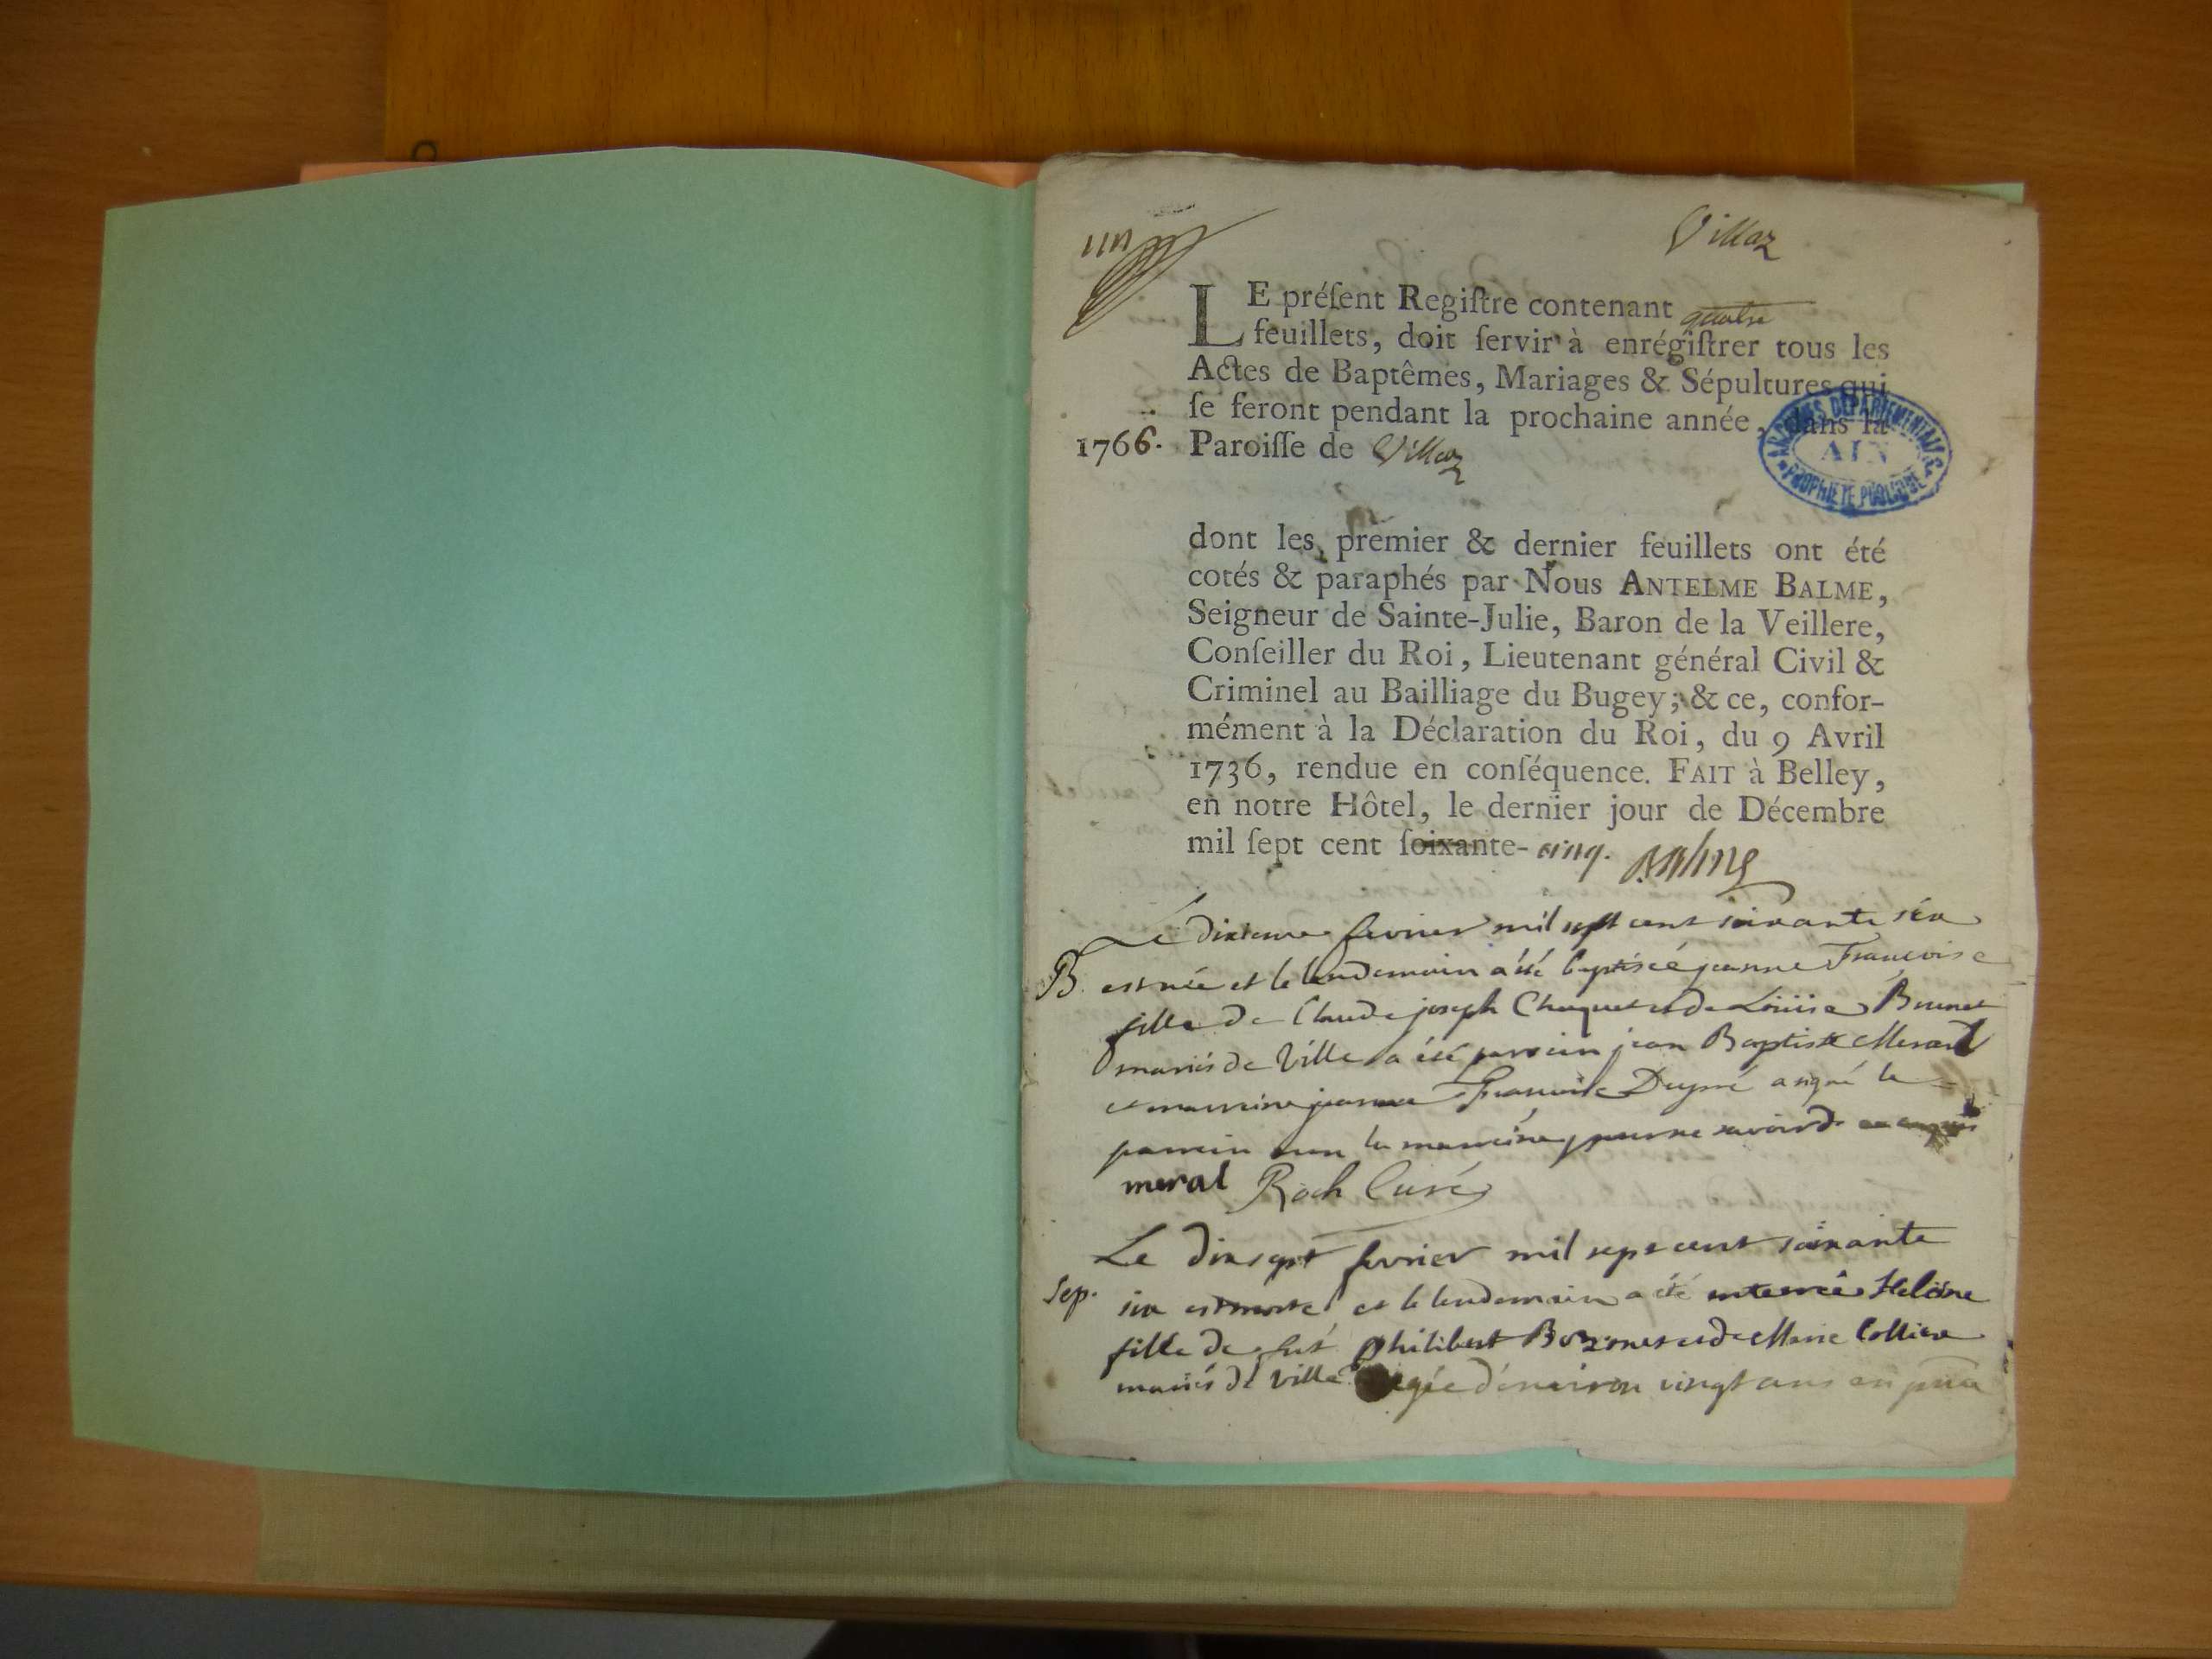 un
Villaz
LE préſent Regiſtre contenant quatre
feuillets, doit ſervir à enrégiſtrer tous les
Actes de Baptêmes, Mariages & Sépultures qui
ſe feront pendant la prochaine année, dans la
1766. Paroiſſe de Villaz
ARCHIVES DEPARTEMENTALES
AIN
PROPRIETE PUBLIQUE
dont les premier & dernier feuillets ont été
cotés & paraphés par Nous ANTELME BALME,
Seigneur de Sainte-Julie, Baron de la Veillere,
Conſeiller du Roi, Lieutenant général Civil &
Criminel au Bailliage du Bugey; & ce, confor-
mément à la Déclaration du Roi, du 9 Avril
1736, rendue en conſéquence. FAIT à Belley,
en notre Hôtel, le dernier jour de Décembre
mil ſept cent ſoixante- cinq. Balme
Le fevrier mil sept cent soixante six
B. est née et le lendemain a été baptisée jeanne Francoise
fille de Claude joseph Chuquet et de Louise Brunet
mariés de Ville a été parrein jean Baptiste Meral
et marreine jeanne Francoise Dupré a signé le
parrein non la marreine pour ne savoir de
meral Roch Curé
Le dix sept fevrier mil sept cent soixante
Sep. six est morte et le lendemain a été enterrée Helène
fille de fut philibert et de Marie
mariés de Ville agée d'environ vingt ans en